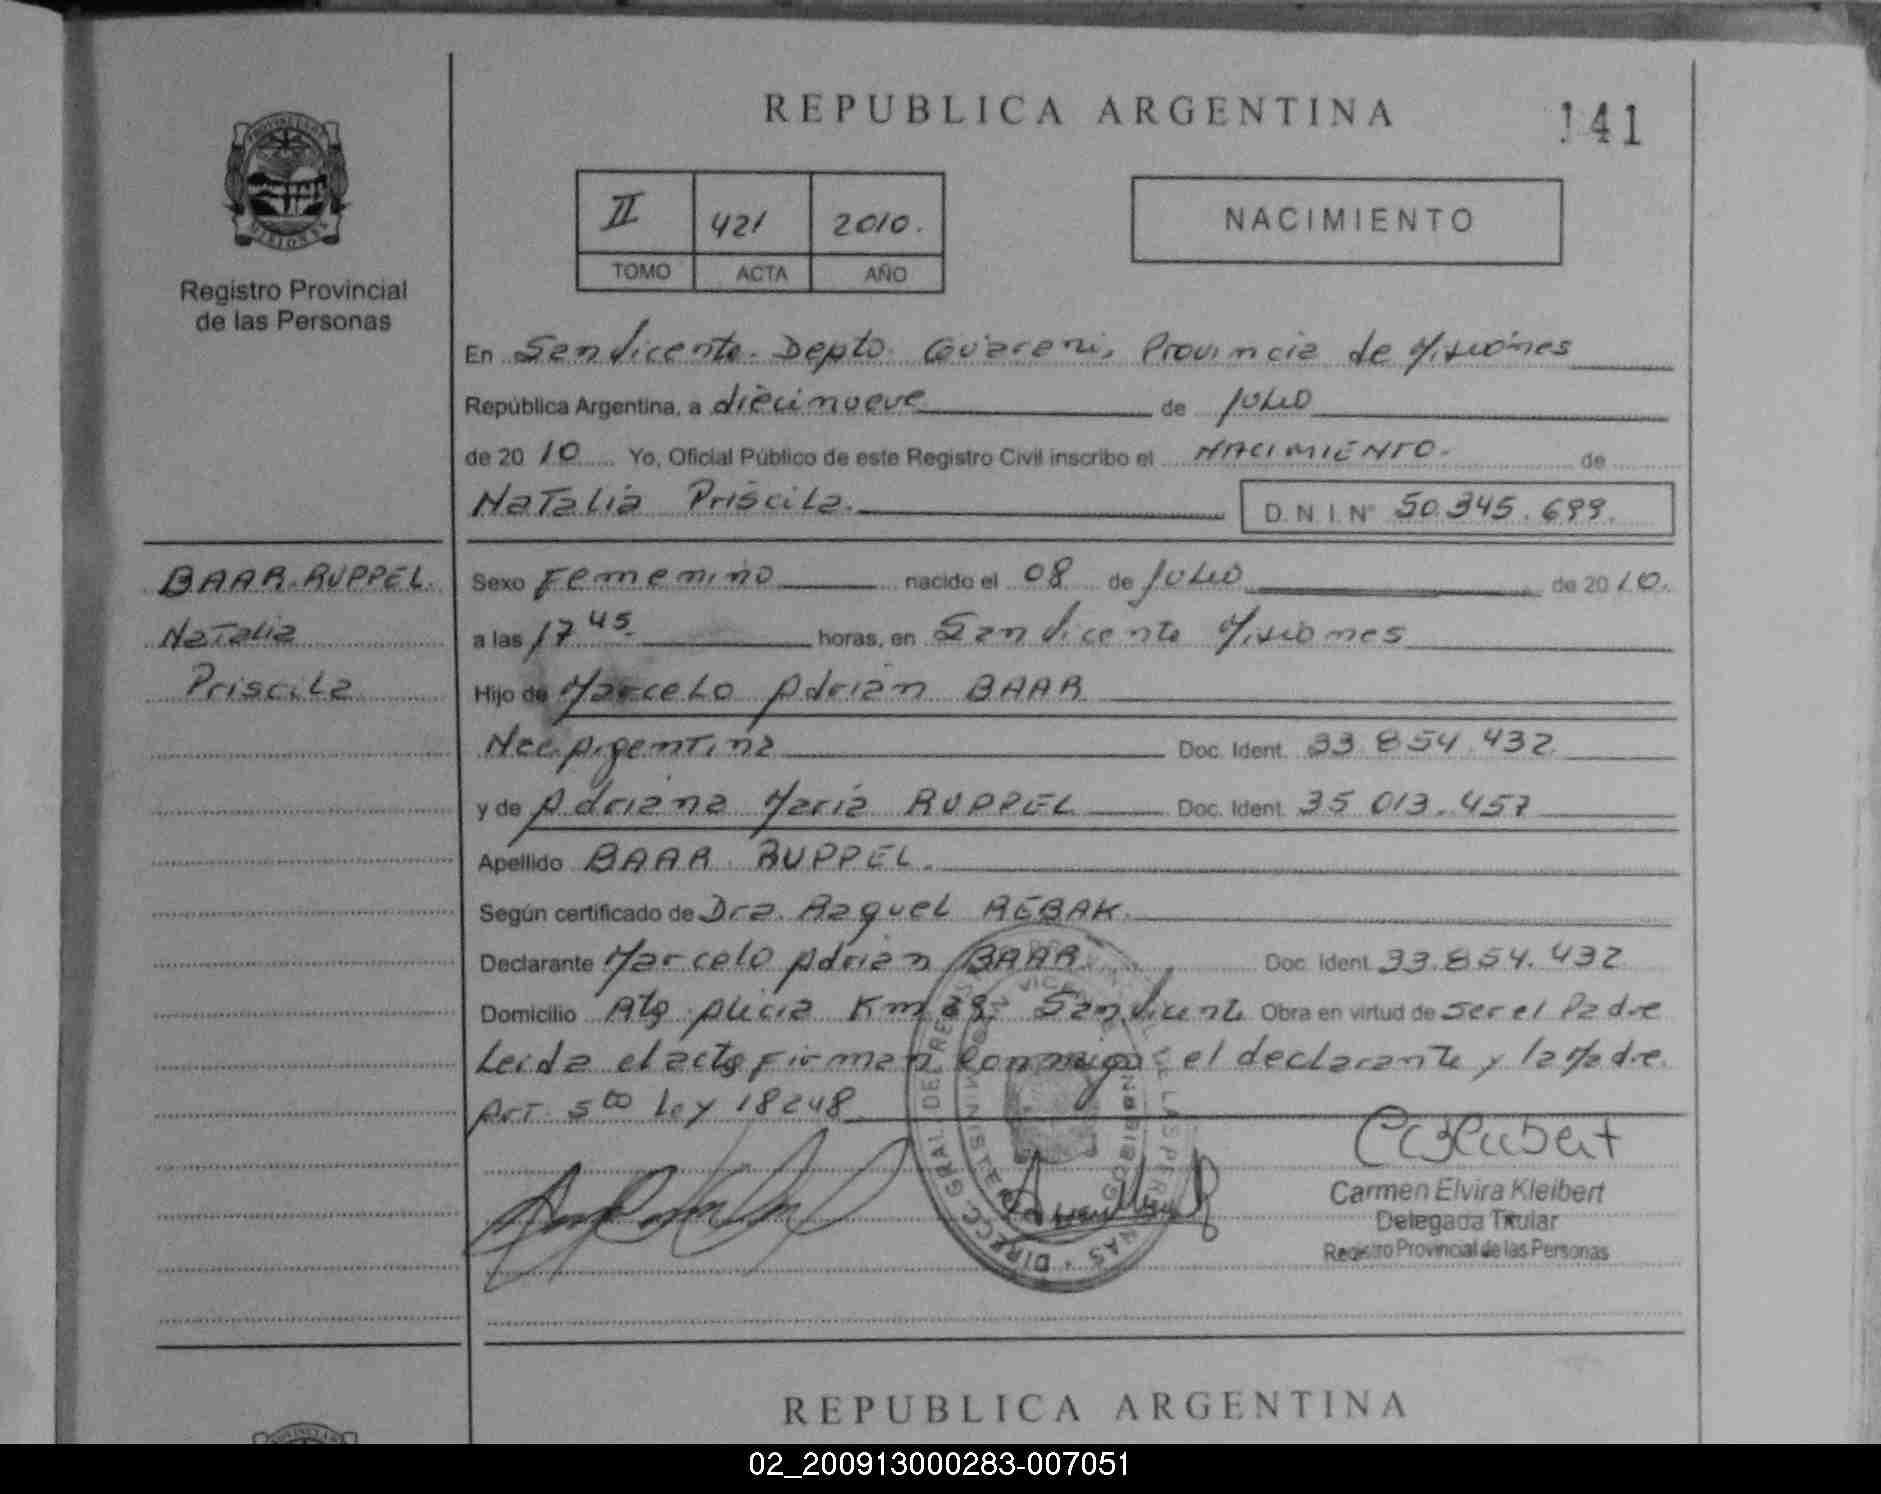 REPUBLICA ARGENTINA
141
PROVINCIA DE MISIONES
Registro Provincial
de las Personas
II 421 2010.
TOMO ACTA AÑO
NACIMIENTO
En San Vicente. Depto. Guarani, Provincia de Misiones
República Argentina, a diecinueve de Julio
de 20 10 Yo, Oficial Público de este Registro Civil inscribo el NACIMIENTO. de
Natalia Priscila. D. N. I. N° 50.345.699.
BAAR-RUPPEL.
Natalia
Priscila
Sexo Femenino nacido el 08 de Julio de 20 10.
a las 17 45. horas, en San Vicente Misiones
Hijo de Marcelo Adrián BAAR
Nac. Argentina Doc. Ident. 33.854.432
y de Adriana María RUPPEL Doc. Ident. 35.013.457
Apellido BAAR RUPPEL.
Según certificado de Dra. Raquel REBAK.
Declarante Marcelo Adrián BAAR Doc. Ident. 33.854.432
Domicilio Alicia Km San Vicente Obra en virtud de ser el Padre
Leida el acta firman conmigo el declarante y la Madre.
Art. 5to Ley 18248
Carmen Elvira Kleibert
Delegada Titular
Registro Provincial de las Personas
REPUBLICA ARGENTINA
02_200913000283-007051